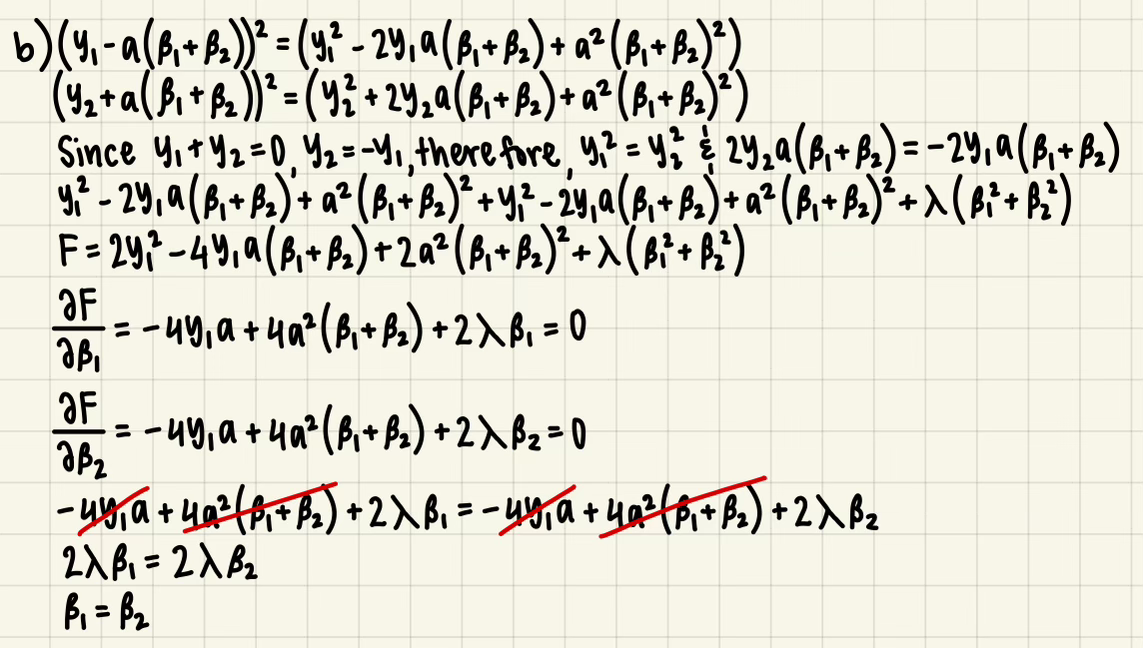 b) (y₁ - a(β₁+β₂))² = (y₁² - 2y₁a(β₁+β₂) + a²(β₁+β₂)²)
(y₂ + a(β₁+β₂))² = (y₂² + 2y₂a(β₁+β₂) + a²(β₁+β₂)²)
Since y₁+y₂=0, y₂=-y₁, therefore, y₁² = y₂² & 2y₂a(β₁+β₂) = -2y₁a(β₁+β₂)
y₁² - 2y₁a(β₁+β₂) + a²(β₁+β₂)² + y₁² - 2y₁a(β₁+β₂) + a²(β₁+β₂)² + λ(β₁²+β₂²)
F = 2y₁² - 4y₁a(β₁+β₂) + 2a²(β₁+β₂)² + λ(β₁²+β₂²)
∂F/∂β₁ = -4y₁a + 4a²(β₁+β₂) + 2λβ₁ = 0
∂F/∂β₂ = -4y₁a + 4a²(β₁+β₂) + 2λβ₂ = 0
-4y₁a + 4a²(β₁+β₂) + 2λβ₁ = -4y₁a + 4a²(β₁+β₂) + 2λβ₂
2λβ₁ = 2λβ₂
β₁ = β₂